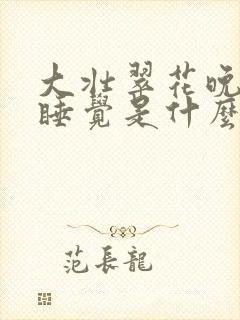 大壯翠花晚
睡覺是什麼
范長龍